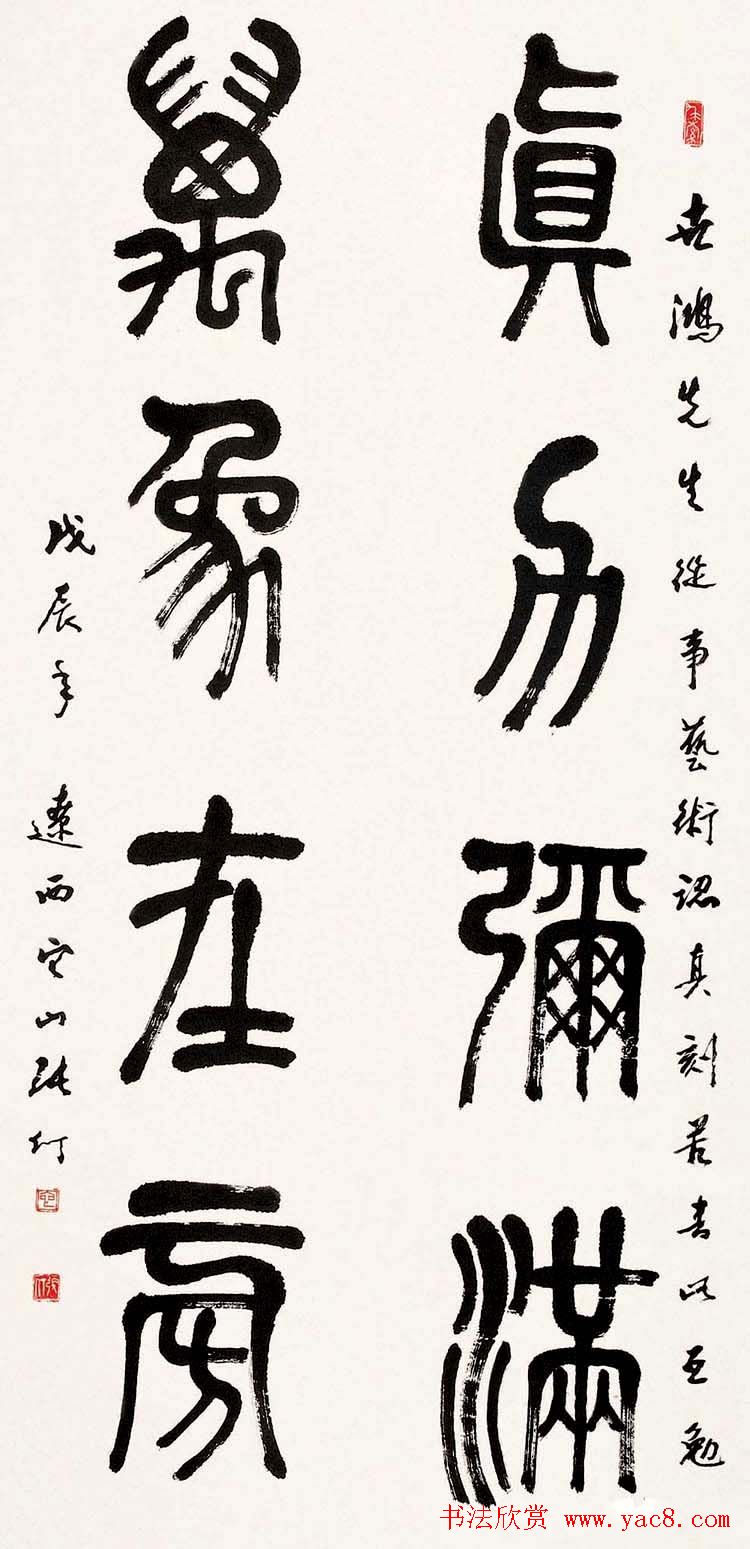 世鴻先生從事藝術認真刻苦書此互勉
真力彌滿
萬象在旁
戊辰年 遼西空山張仃
书法欣赏 www.yac8.com